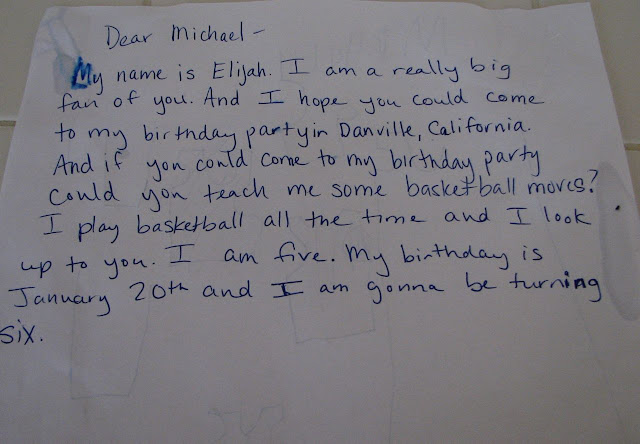 Dear Michael -
My name is Elijah. I am a really big
fan of you. And I hope you could come
to my birthday party in Danville, California.
And if you could come to my birthday party
could you teach me some basketball moves?
I play basketball all the time and I look
up to you. I am five. My birthday is
January 20th and I am gonna be turning
six.